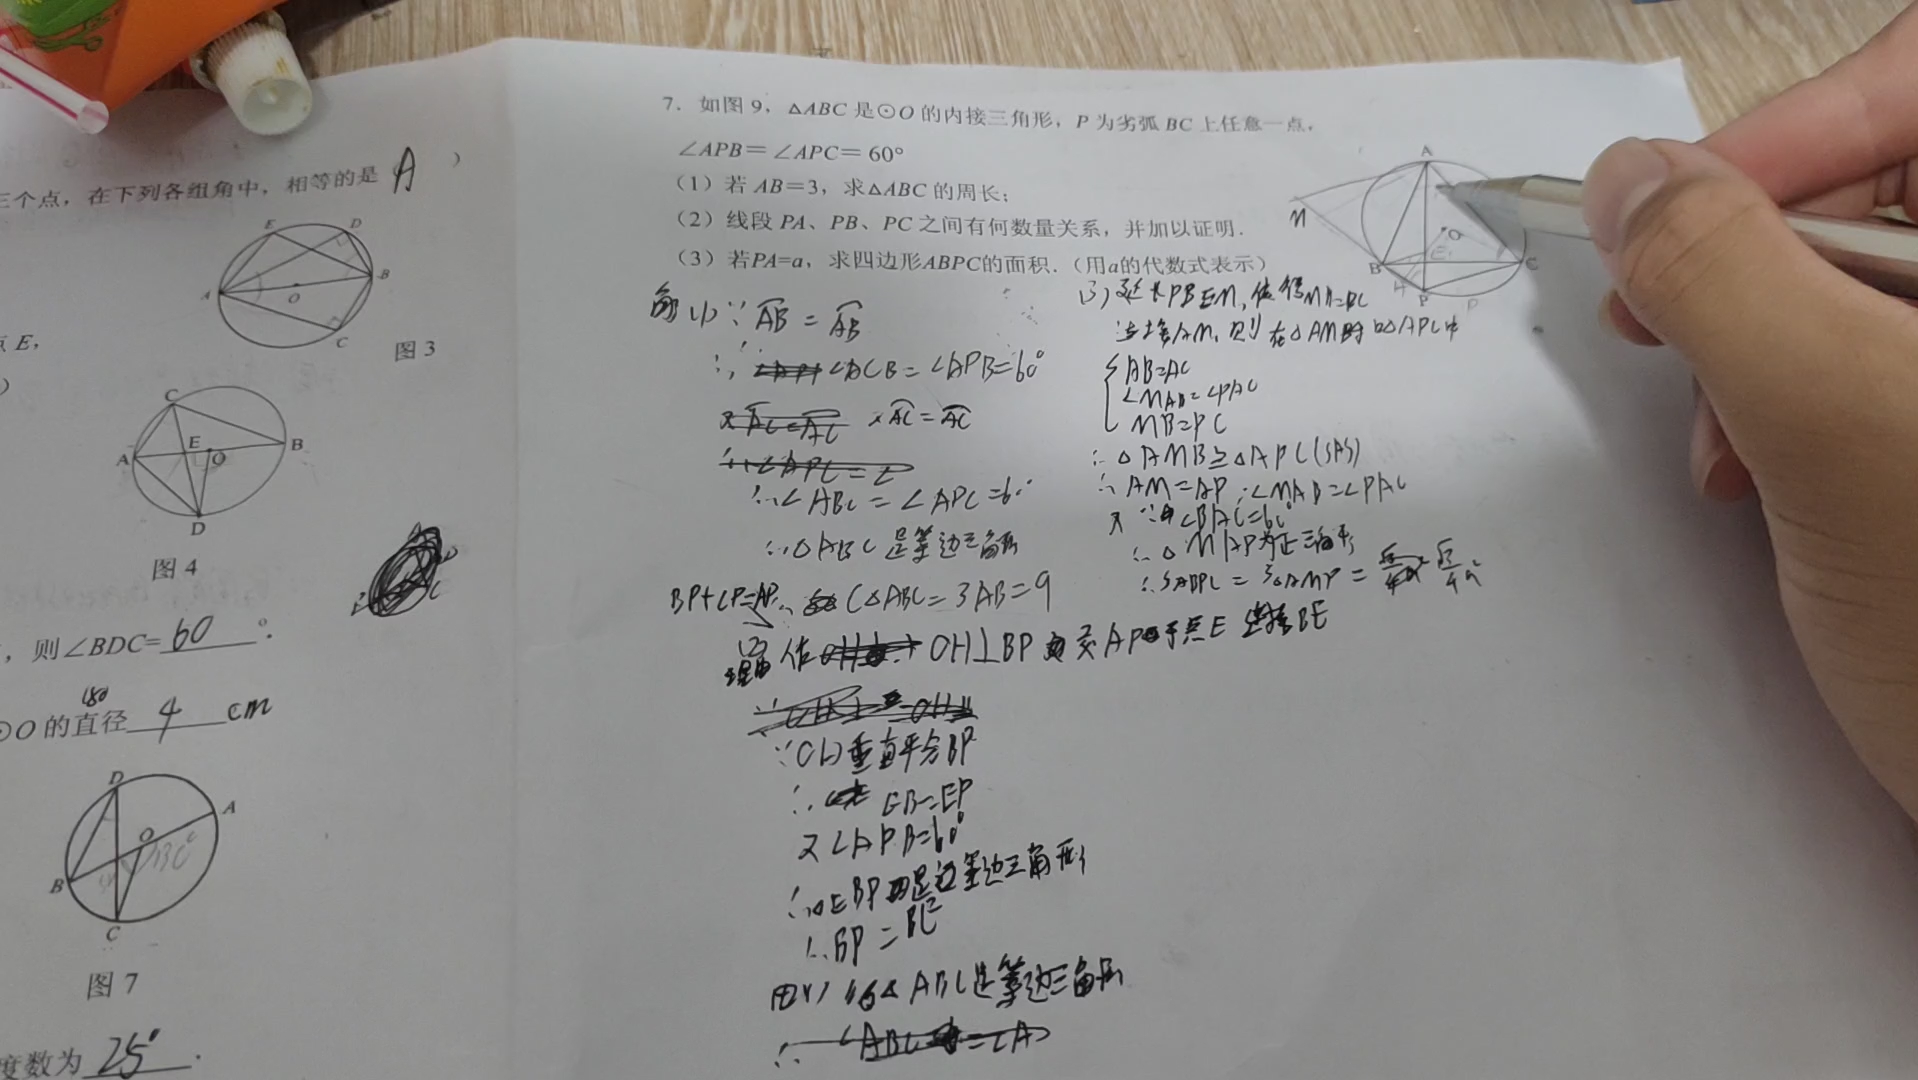 三个点，在下列各组角中，相等的是 A ）
E
D
A
B
O
C
图 3
点 E，
）
C
E
B
A
O
D
图 4
，则∠BDC= 60 °.
180
⊙O 的直径 4 cm
D
A
O
B
C
图 7
度数为 25° .
7. 如图 9，△ABC 是⊙O 的内接三角形，P 为劣弧 BC 上任意一点，
∠APB＝∠APC＝60°
（1）若 AB＝3，求△ABC 的周长；
（2）线段 PA、PB、PC 之间有何数量关系，并加以证明．
（3）若PA=a，求四边形ABPC的面积．（用a的代数式表示）
A
M
O
E
B
C
P
(1) ∵ AB = AB
∴ ∠ACB = ∠APB=60°
又 AC = AC
∴∠ABC = ∠APC=60°
∴△ABC 是等边三角形
BP+CP=AP
C△ABC = 3AB = 9
(2) 理由 作 OH⊥BP 交 AP于点E 连接BE
∵OH垂直平分BP
∴ EB=EP
又∠APB=60°
∴△EBP是等边三角形
∴BP = BE
由(1)得△ABC是等边三角形
(3) 延长PB至M，使得MB=PC
连接AM，则在△AMB和△APC中
AB=AC
MB=PC
∴△AMB≌△APC(SAS)
∴ AM=AP ∠MAB=∠PAC
又∵∠BAC=60°
∴△MAP为正三角形